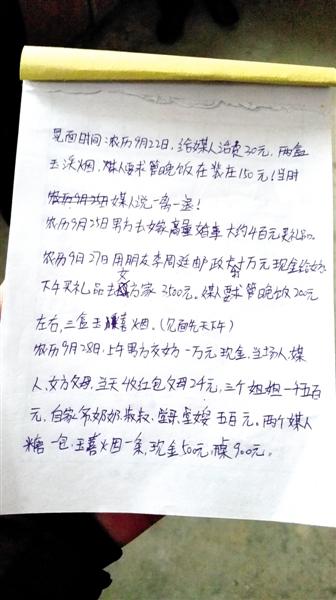 见面时间:农历9月22日,给媒人洽费20元,两盒
玉溪烟,媒人要求管晚饭在装在150元(当时
农历9月25日媒人说一离一退!
农历9月25日男方去嫁商量婚事大约4百元买礼品。
农历9月27日用朋友李周廷邮政卡打1万元现金给女方
下午买礼品去女方家3500元。媒人要求管晚饭200元
左右,三盒玉喜烟。(见面先天下午)
农历9月28日,上午男方交女方一万元现金,当场人,媒
人,女方父母,当天收红包父母24元,三个姐姐一千五百
元,自家爷奶奶叔叔,堂哥,堂嫂五百元。两个媒人
糖一包,玉喜烟一条,现金50元,900元。